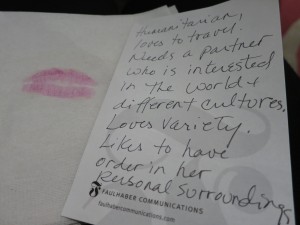 Humanitarian,
loves to travel.
Needs a partner
who is interested
in the world &
different cultures.
Loves variety.
Likes to have
order in her
personal surroundings
FAULHABER COMMUNICATIONS
faulhabercommunications.com